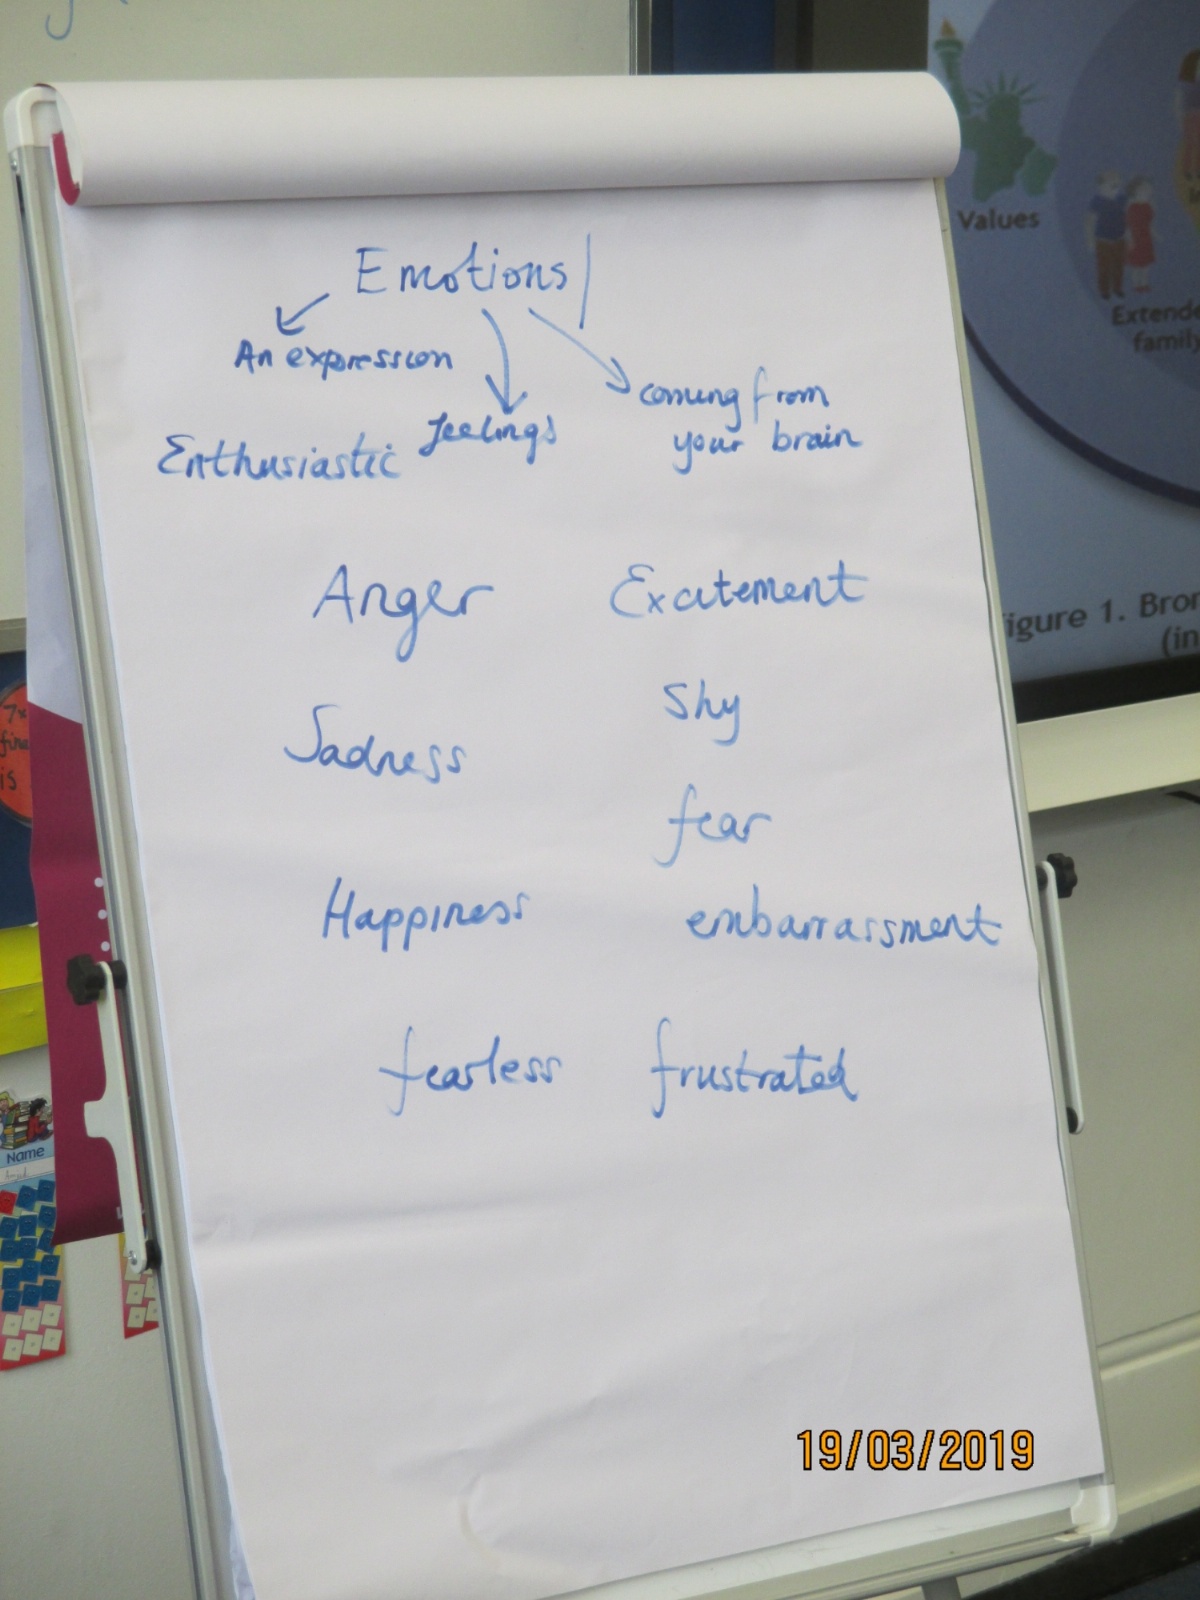 Emotions
An expression
feelings
coming from
your brain
Enthusiastic
Anger
Excitement
Sadness
Shy
fear
Happiness
embarrassment
fearless
frustrated
Values
Extende
family
igure 1. Bron
(in
7x
fine
is
Name
19/03/2019